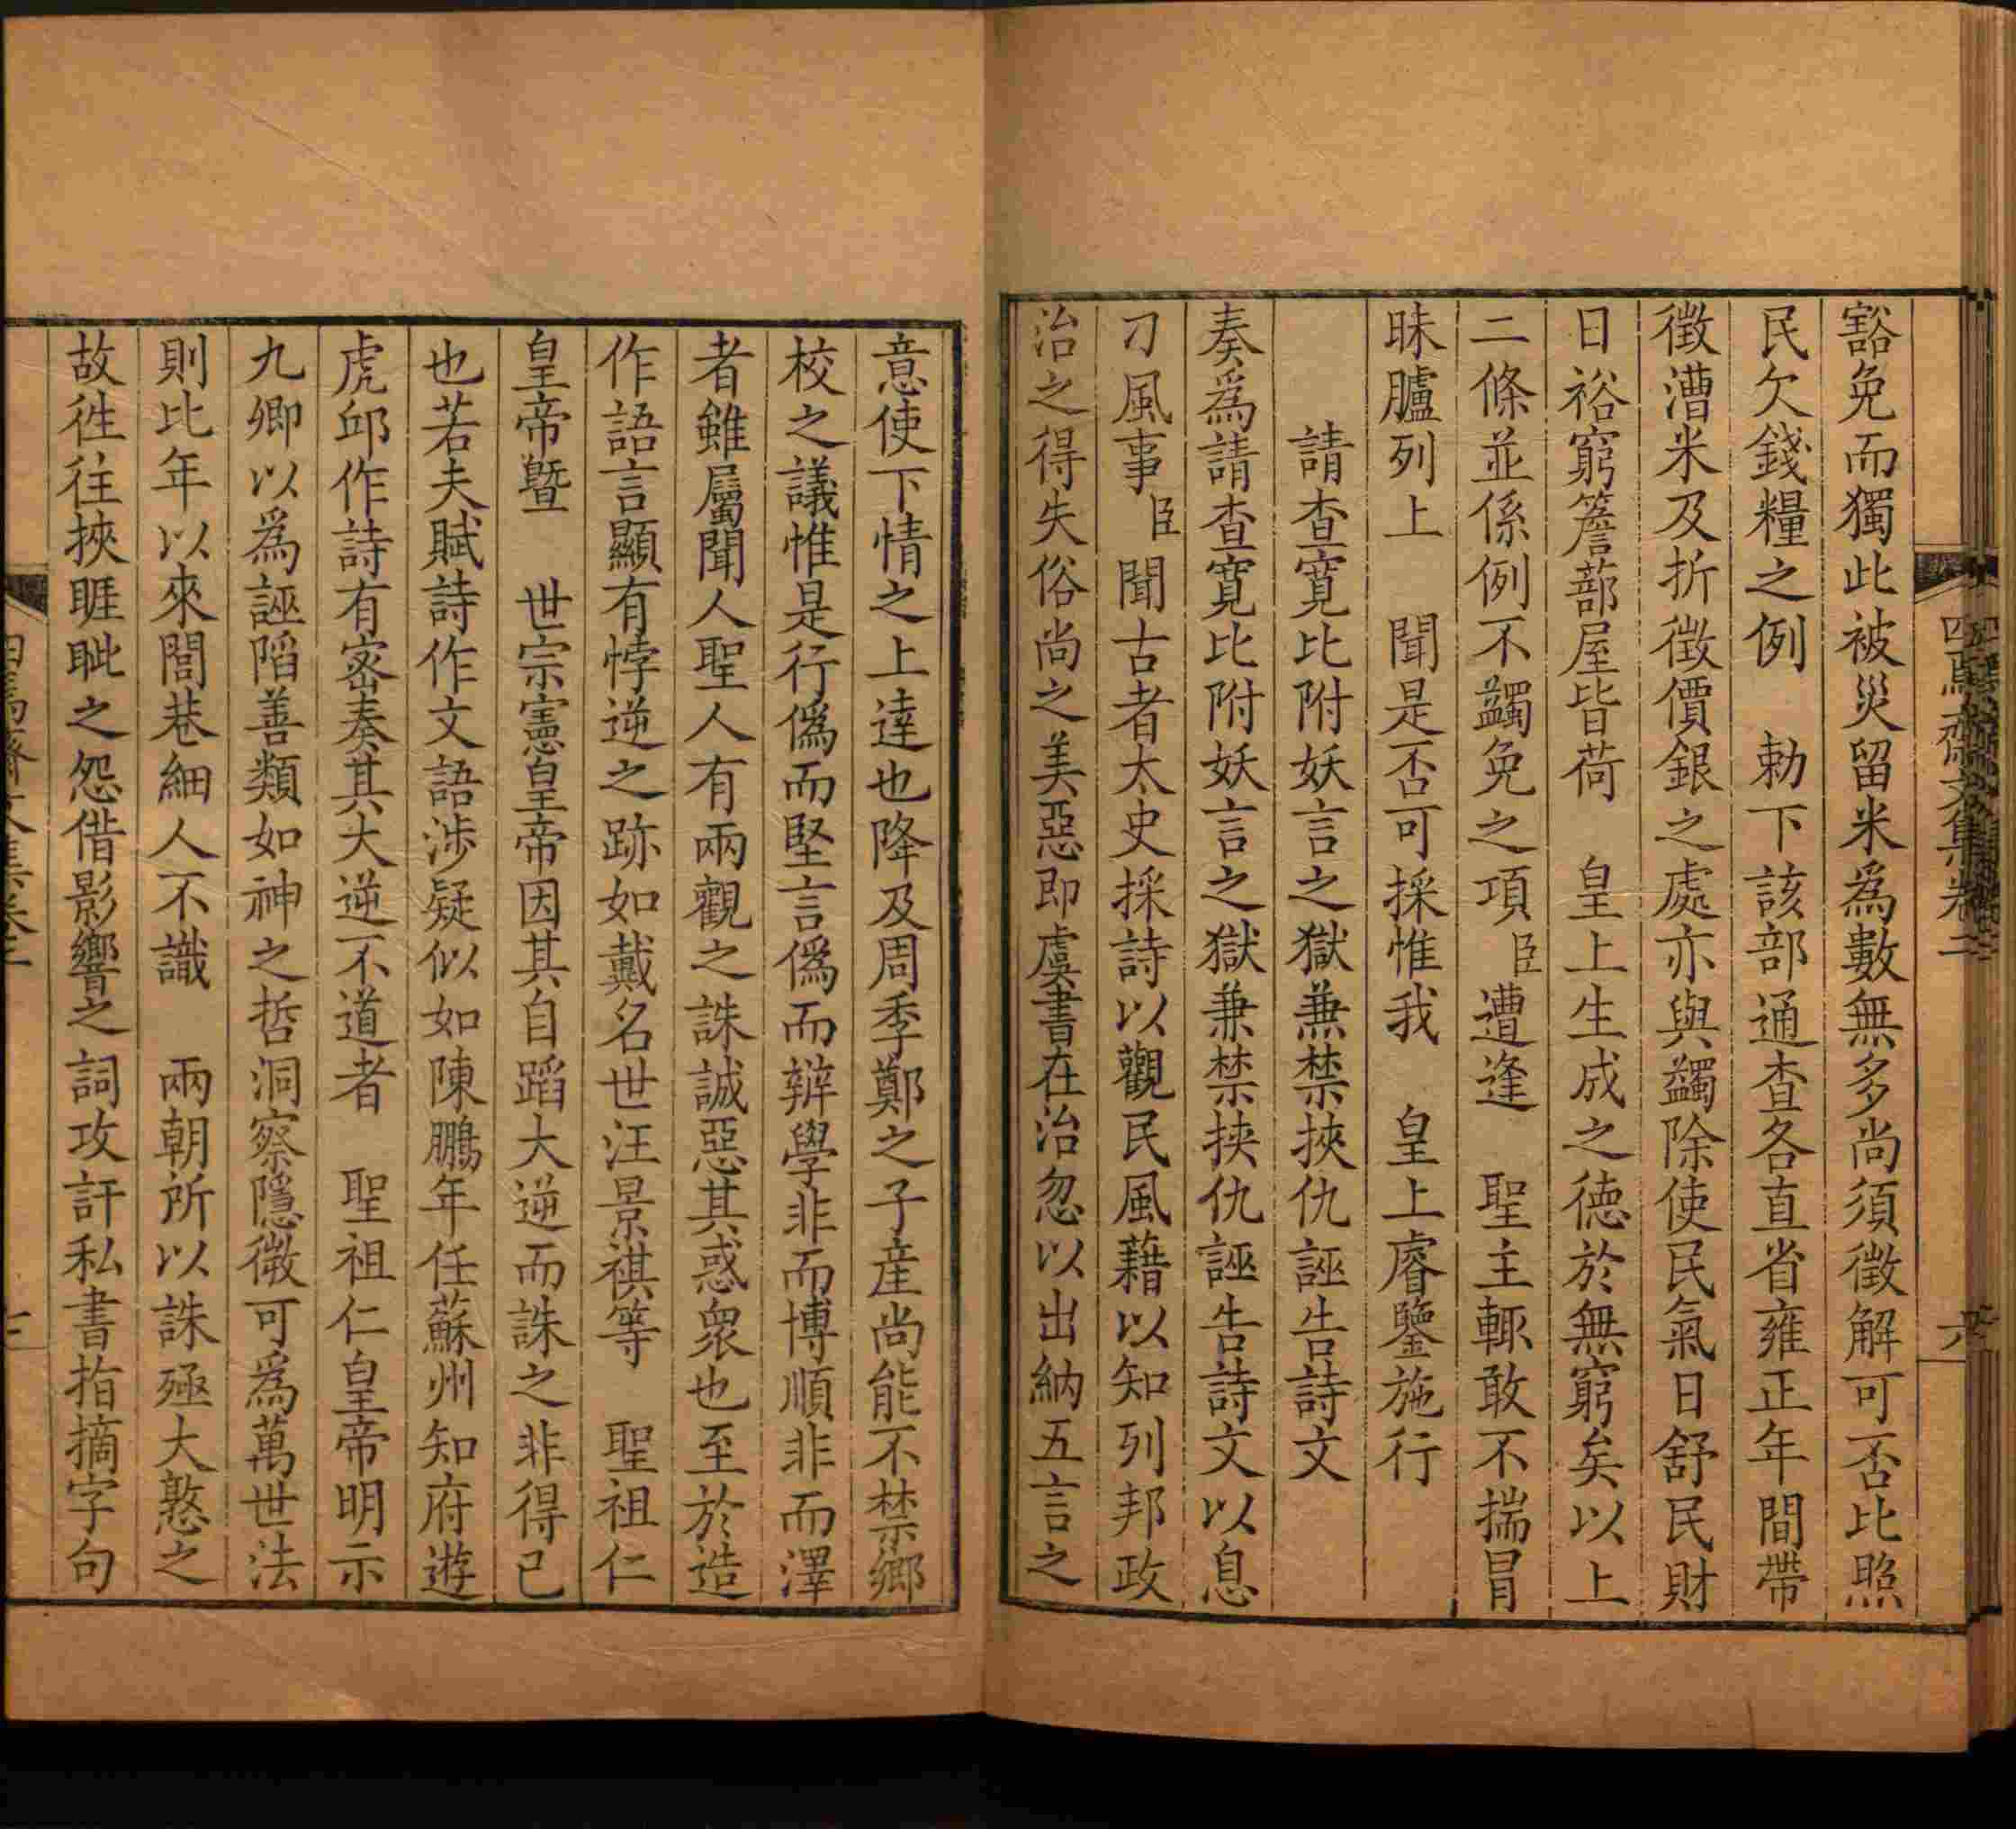 豁免而獨此被災留米為數無多尚須徵解可否比照
民欠錢糧之例　勅下該部通查各直省雍正年間帶
徵漕米及折徵價銀之處亦與蠲除使民氣日舒民財
日裕窮簷蔀屋皆荷　皇上生成之德於無窮矣以上
二條並係例不蠲免之項臣遭逢　聖主輒敢不揣冒
昧臚列上　聞是否可採惟我　皇上睿鑒施行
請查寬比附妖言之獄兼禁挾仇誣告詩文
奏爲請查寬比附妖言之獄兼禁挾仇誣告詩文以息
刁風事臣聞古者太史採詩以觀民風藉以知列邦政
治之得失俗尚之美惡即虞書在治忽以出納五言之
意使下情之上達也降及周季鄭之子產尚能不禁鄉
校之議惟是行僞而堅言僞而辯學非而博順非而澤
者雖屬聞人聖人有兩觀之誅誠惡其惑衆也至於造
作語言顯有悖逆之跡如戴名世汪景祺等　聖祖仁
皇帝暨　世宗憲皇帝因其自蹈大逆而誅之非得已
也若夫賦詩作文語涉疑似如陳鵬年任蘇州知府遊
虎邱作詩有密奏其大逆不道者　聖祖仁皇帝明示
九卿以爲誣陷善類如神之哲洞察隱微可爲萬世法
則比年以來閭巷細人不識　兩朝所以誅殛大憝之
故徃往挾睚眦之怨借影響之詞攻訐私書指摘字句